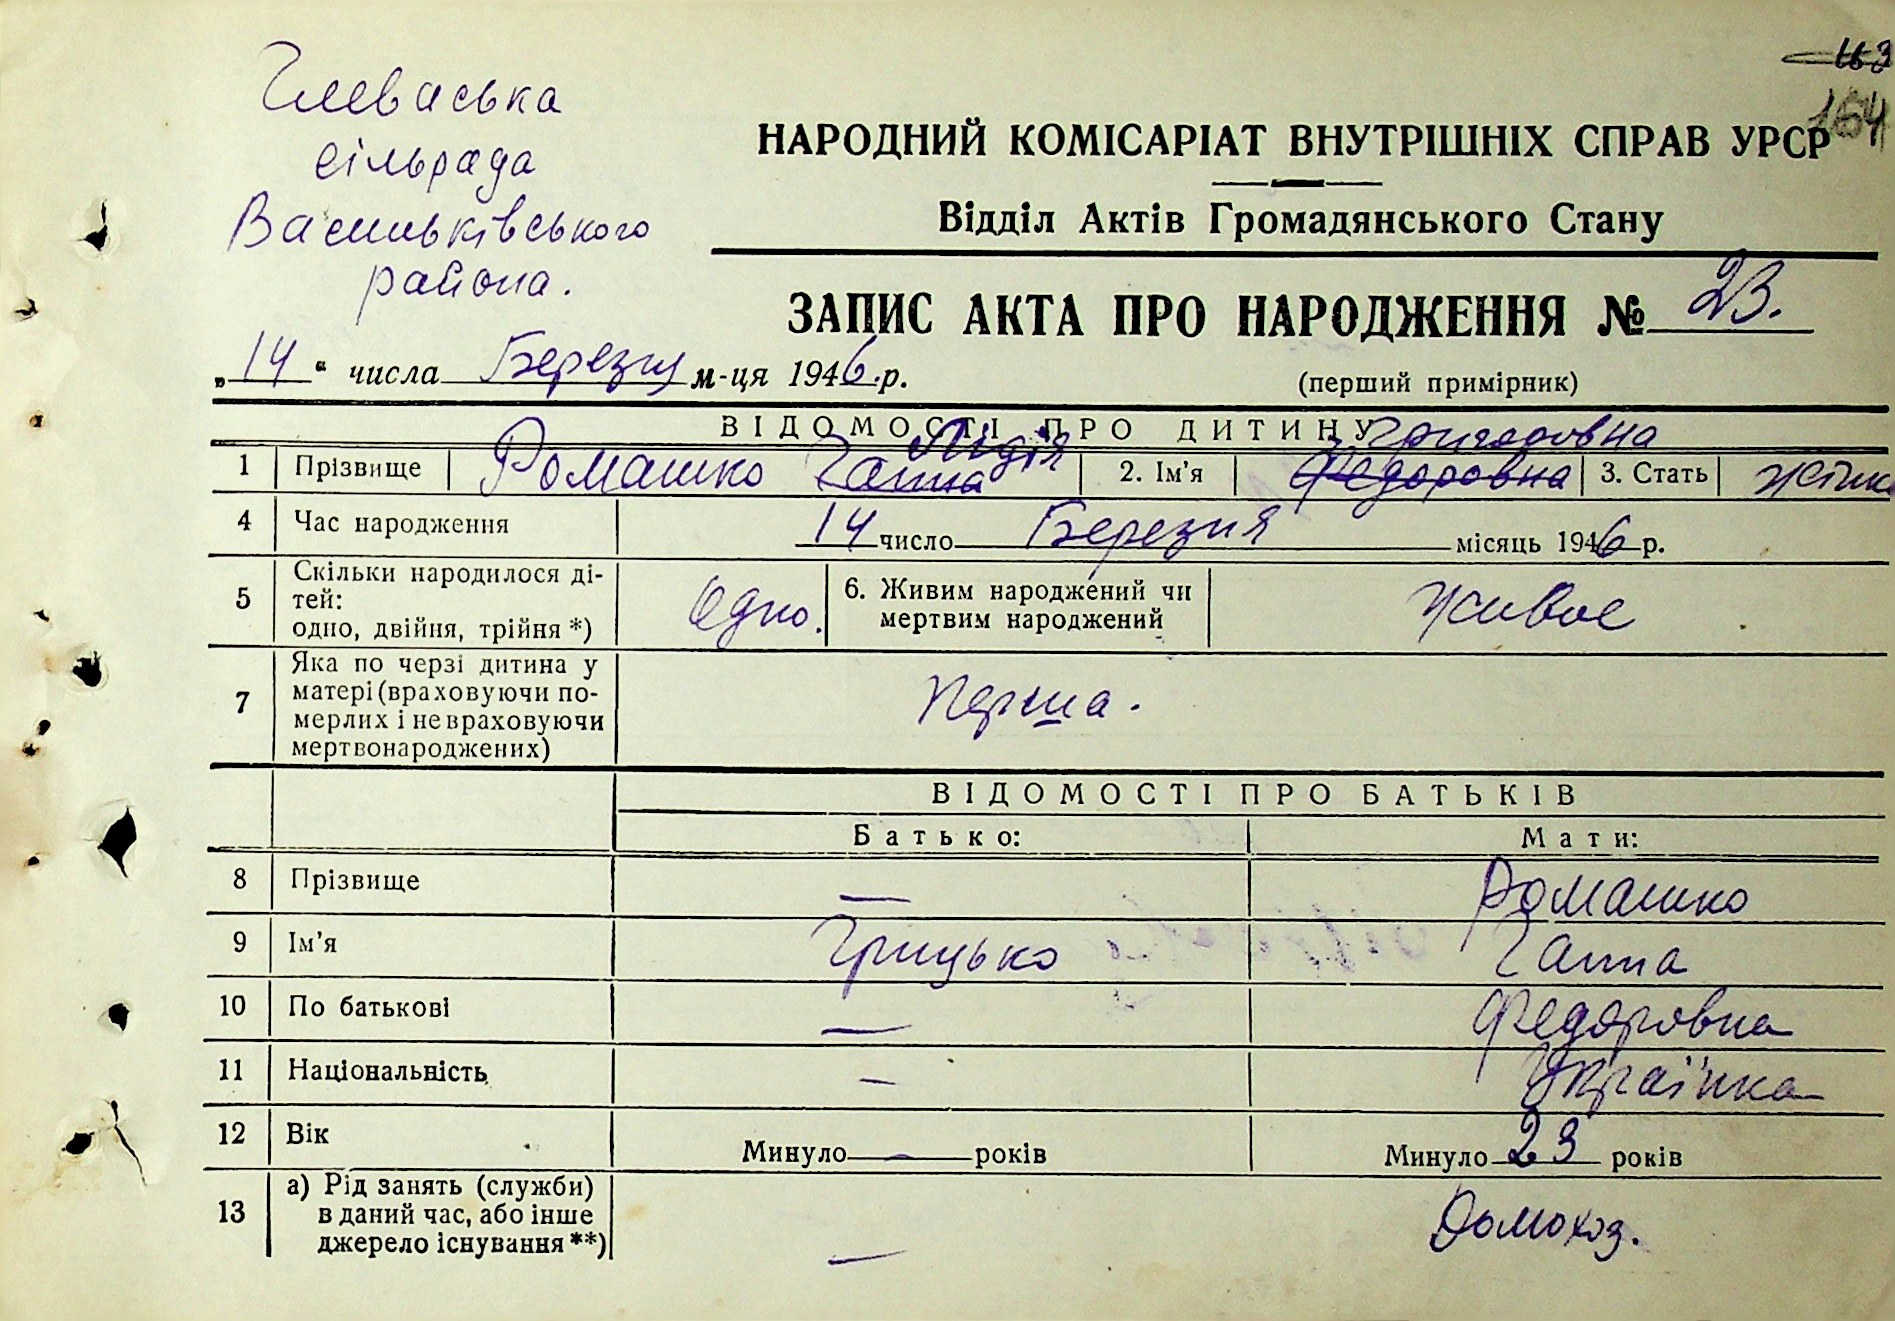 163
164
Глеваська
сільрада
Васильківського
района.
НАРОДНИЙ КОМІСАРІАТ ВНУТРІШНІХ СПРАВ УРСР
Відділ Актів Громадянського Стану
ЗАПИС АКТА ПРО НАРОДЖЕННЯ № 23.
„14“ числа Березня м-ця 1946.р.
(перший примірник)
ВІДОМОСТІ ПРО ДИТИНУ
Лідія Григоровна
1 Прізвище Ромашко Ганна 2. Ім'я Федоровна 3. Стать жіноч
4 Час народження 14 число Березня місяць 1946 р.
5 Скільки народилося ді-
тей:
одно, двійня, трійня *) Одно. 6. Живим народжений чи
мертвим народжений живое
7 Яка по черзі дитина у
матері (враховуючи по-
мерлих і не враховуючи
мертвонароджених) Перша.
ВІДОМОСТІ ПРО БАТЬКІВ
Батько: Мати:
8 Прізвище — Ромашко
9 Ім'я Грицько Ганна
10 По батькові — Федоровна
11 Національність — Українка
12 Вік Минуло — років Минуло 23 років
13 а) Рід занять (служби)
в даний час, або інше
джерело існування **) — Домохоз.